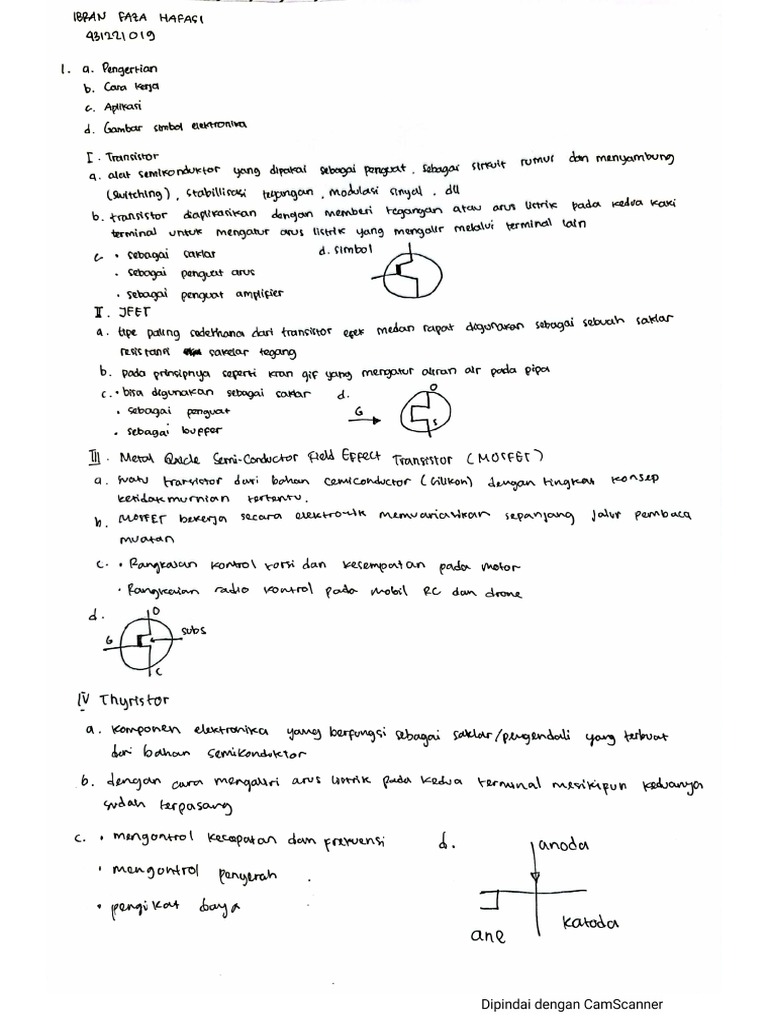 IBRAN FAZA HAFASI
431221019
1. a. Pengertian
b. Cara kerja
c. Aplikasi
d. Gambar simbol elektronika
I. Transistor
a. alat semikonduktor yang dipakai sebagai penguat, sebagai sirkuit rumur dan menyambung
(switching), stabillisasi tegangan, modulasi sinyal. dll
b. transistor diaplikasikan dengan memberi tegangan atau arus listrik pada kedua kaki
terminal untuk mengatur arus listrik yang mengalir melalui terminal lain
c. • sebagai saklar
d. simbol
• sebagai penguat arus
• sebagai penguat amplifier
II. JFET
a. tipe paling sederhana dari transistor efek medan dapat digunakan sebagai sebuah saklar
resistansi sakelar tegang
b. pada prinsipnya seperti kran air yang mengatur aliran air pada pipa
c. • bisa digunakan sebagai saklar
d.
D
G
S
• sebagai penguat
• sebagai buffer
III. Metal Oxide Semi-Conductor Field Effect Transistor (MOSFET)
a. suatu transistor dari bahan semiconductor (silikon) dengan tingkat konsep
ketidakmurnian tertentu.
b. MOSFET bekerja secara elektronik memvariasikan sepanjang jalur pembaca
muatan
c. • Rangkaian kontrol torsi dan kesempatan pada motor
• Rangkaian radio kontrol pada mobil RC dan drone
d.
D
G
subs
C
IV Thyristor
a. komponen elektronika yang berfungsi sebagai saklar/pengendali yang terbuat
dari bahan semikonduktor
b. dengan cara mengaliri arus listrik pada kedua terminal meskipun keduanya
sudah terpasang
c. • mengontrol kecepatan dan frekuensi
d.
anoda
• mengontrol penyerah
• pengikat daya
katoda
ane
Dipindai dengan CamScanner